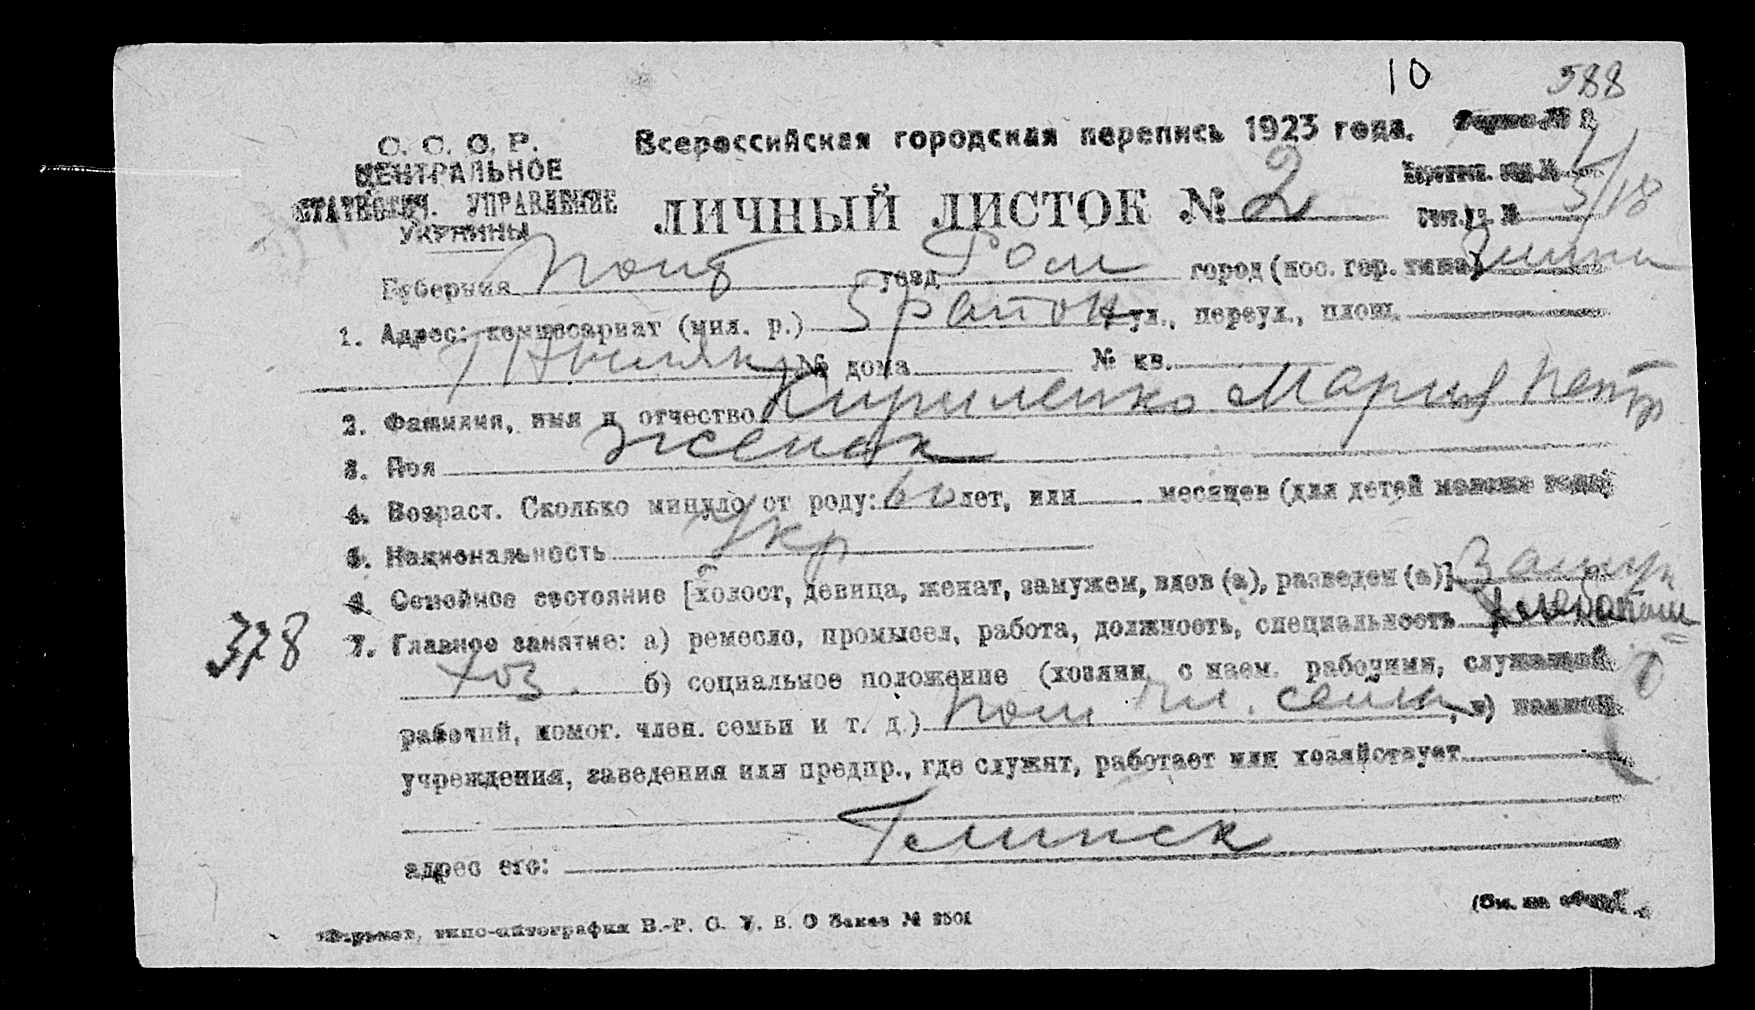 10
588
С. С. С. Р.
ЦЕНТРАЛЬНОЕ
СТАТИСТИЧ. УПРАВЛЕНИЕ
УКРАИНЫ
Всероссийская городская перепись 1923 года.
ЛИЧНЫЙ ЛИСТОК № 2
5/18
Губерния Полт уезд Ром город (пос. гор. типа)
1. Адрес: комиссариат (мил. р.) 5 район ул., переул., площ.
№ дома № кв.
2. Фамилия, имя и отчество Кириленко Мария Петр
3. Пол женск
4. Возраст. Сколько минуло от роду: 60 лет, или месяцев (для детей моложе года)
5. Национальность Укр
6. Семейное состояние [холост, девица, женат, замужем, вдов (а), разведен (а)] Замуж
378
7. Главное занятие: а) ремесло, промысел, работа, должность, специальность
хоз. б) социальное положение (хозяин с наем. рабочими, служащий
рабочий, помог. член. семьи и т. д.) пом чл. семьи, в)
учреждения, заведения или предпр., где служит, работает или хозяйствует
адрес его: Глинск
типо-литография В.-Р. С. У. В. О Заказ № 2501
(См. на